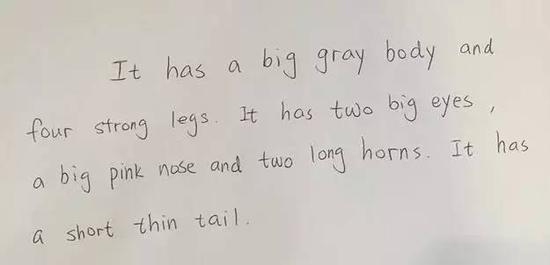 It has a big gray body and
four strong legs. It has two big eyes,
a big pink nose and two long horns. It has
a short thin tail.